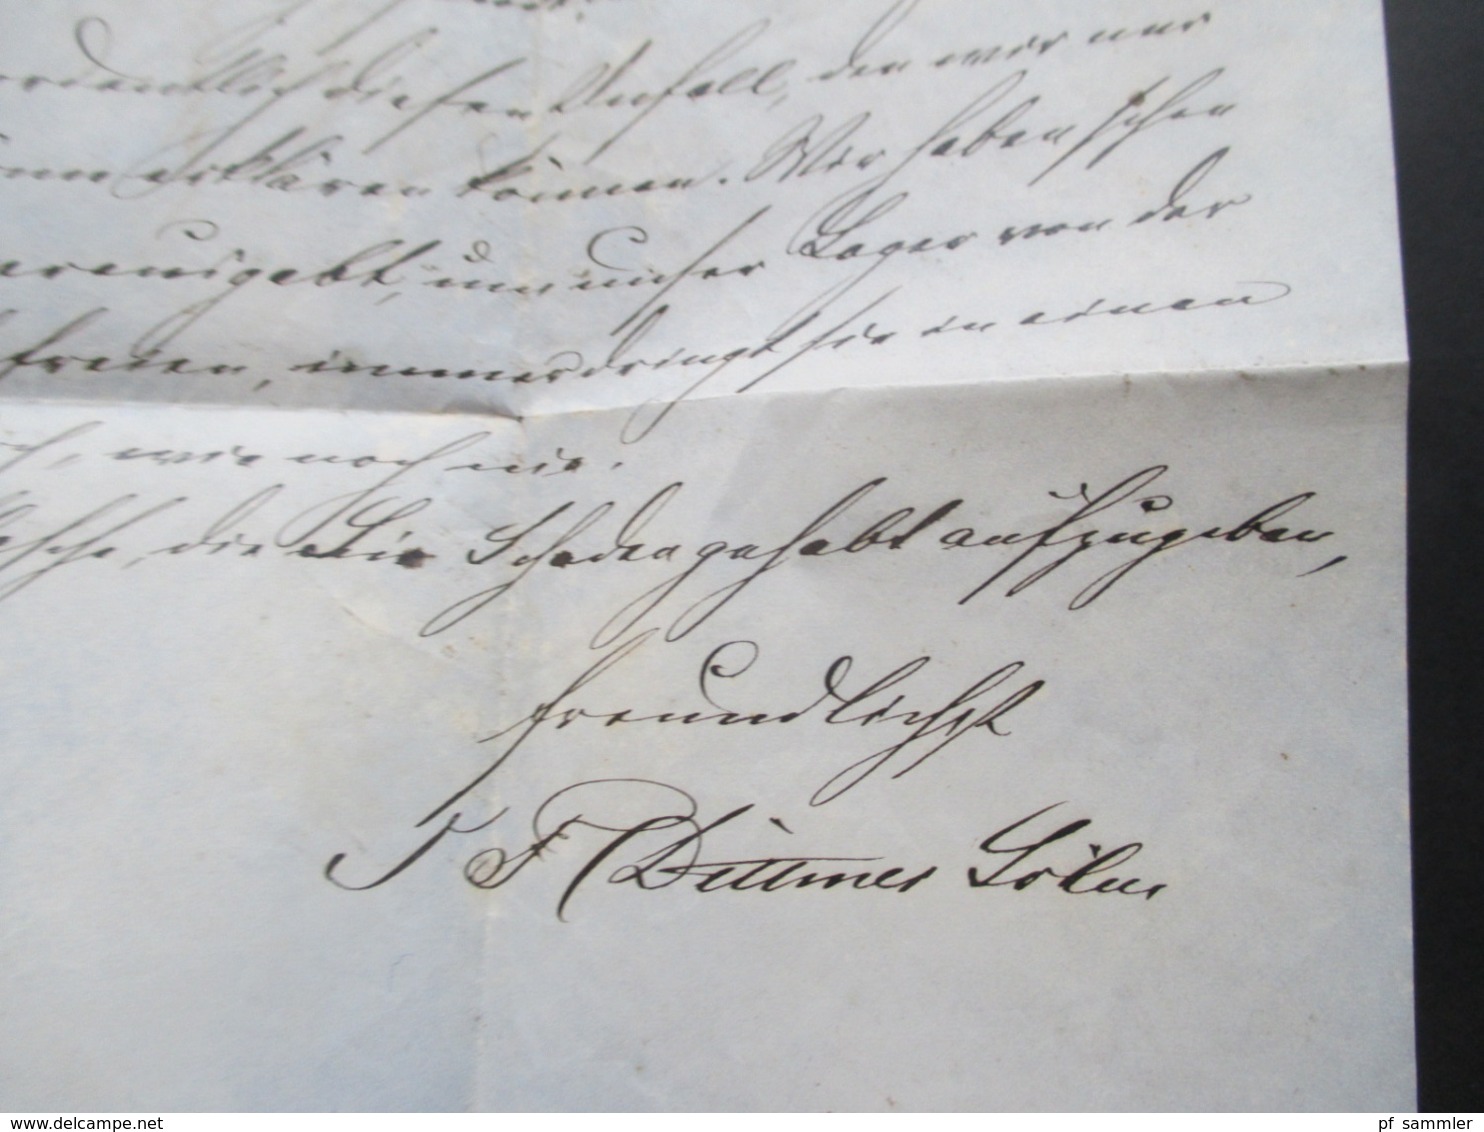 ordentlich diesen Unfall, den wir nur
erklären können. Wir haben schon
um unser Lager von der
freien, immer dringt sie in einen
wie noch nie.
die Sie Schaden gehabt aufzugeben,
freundlichst
J F Dittmer Söhne
www.delcampe.net
pf_sammler